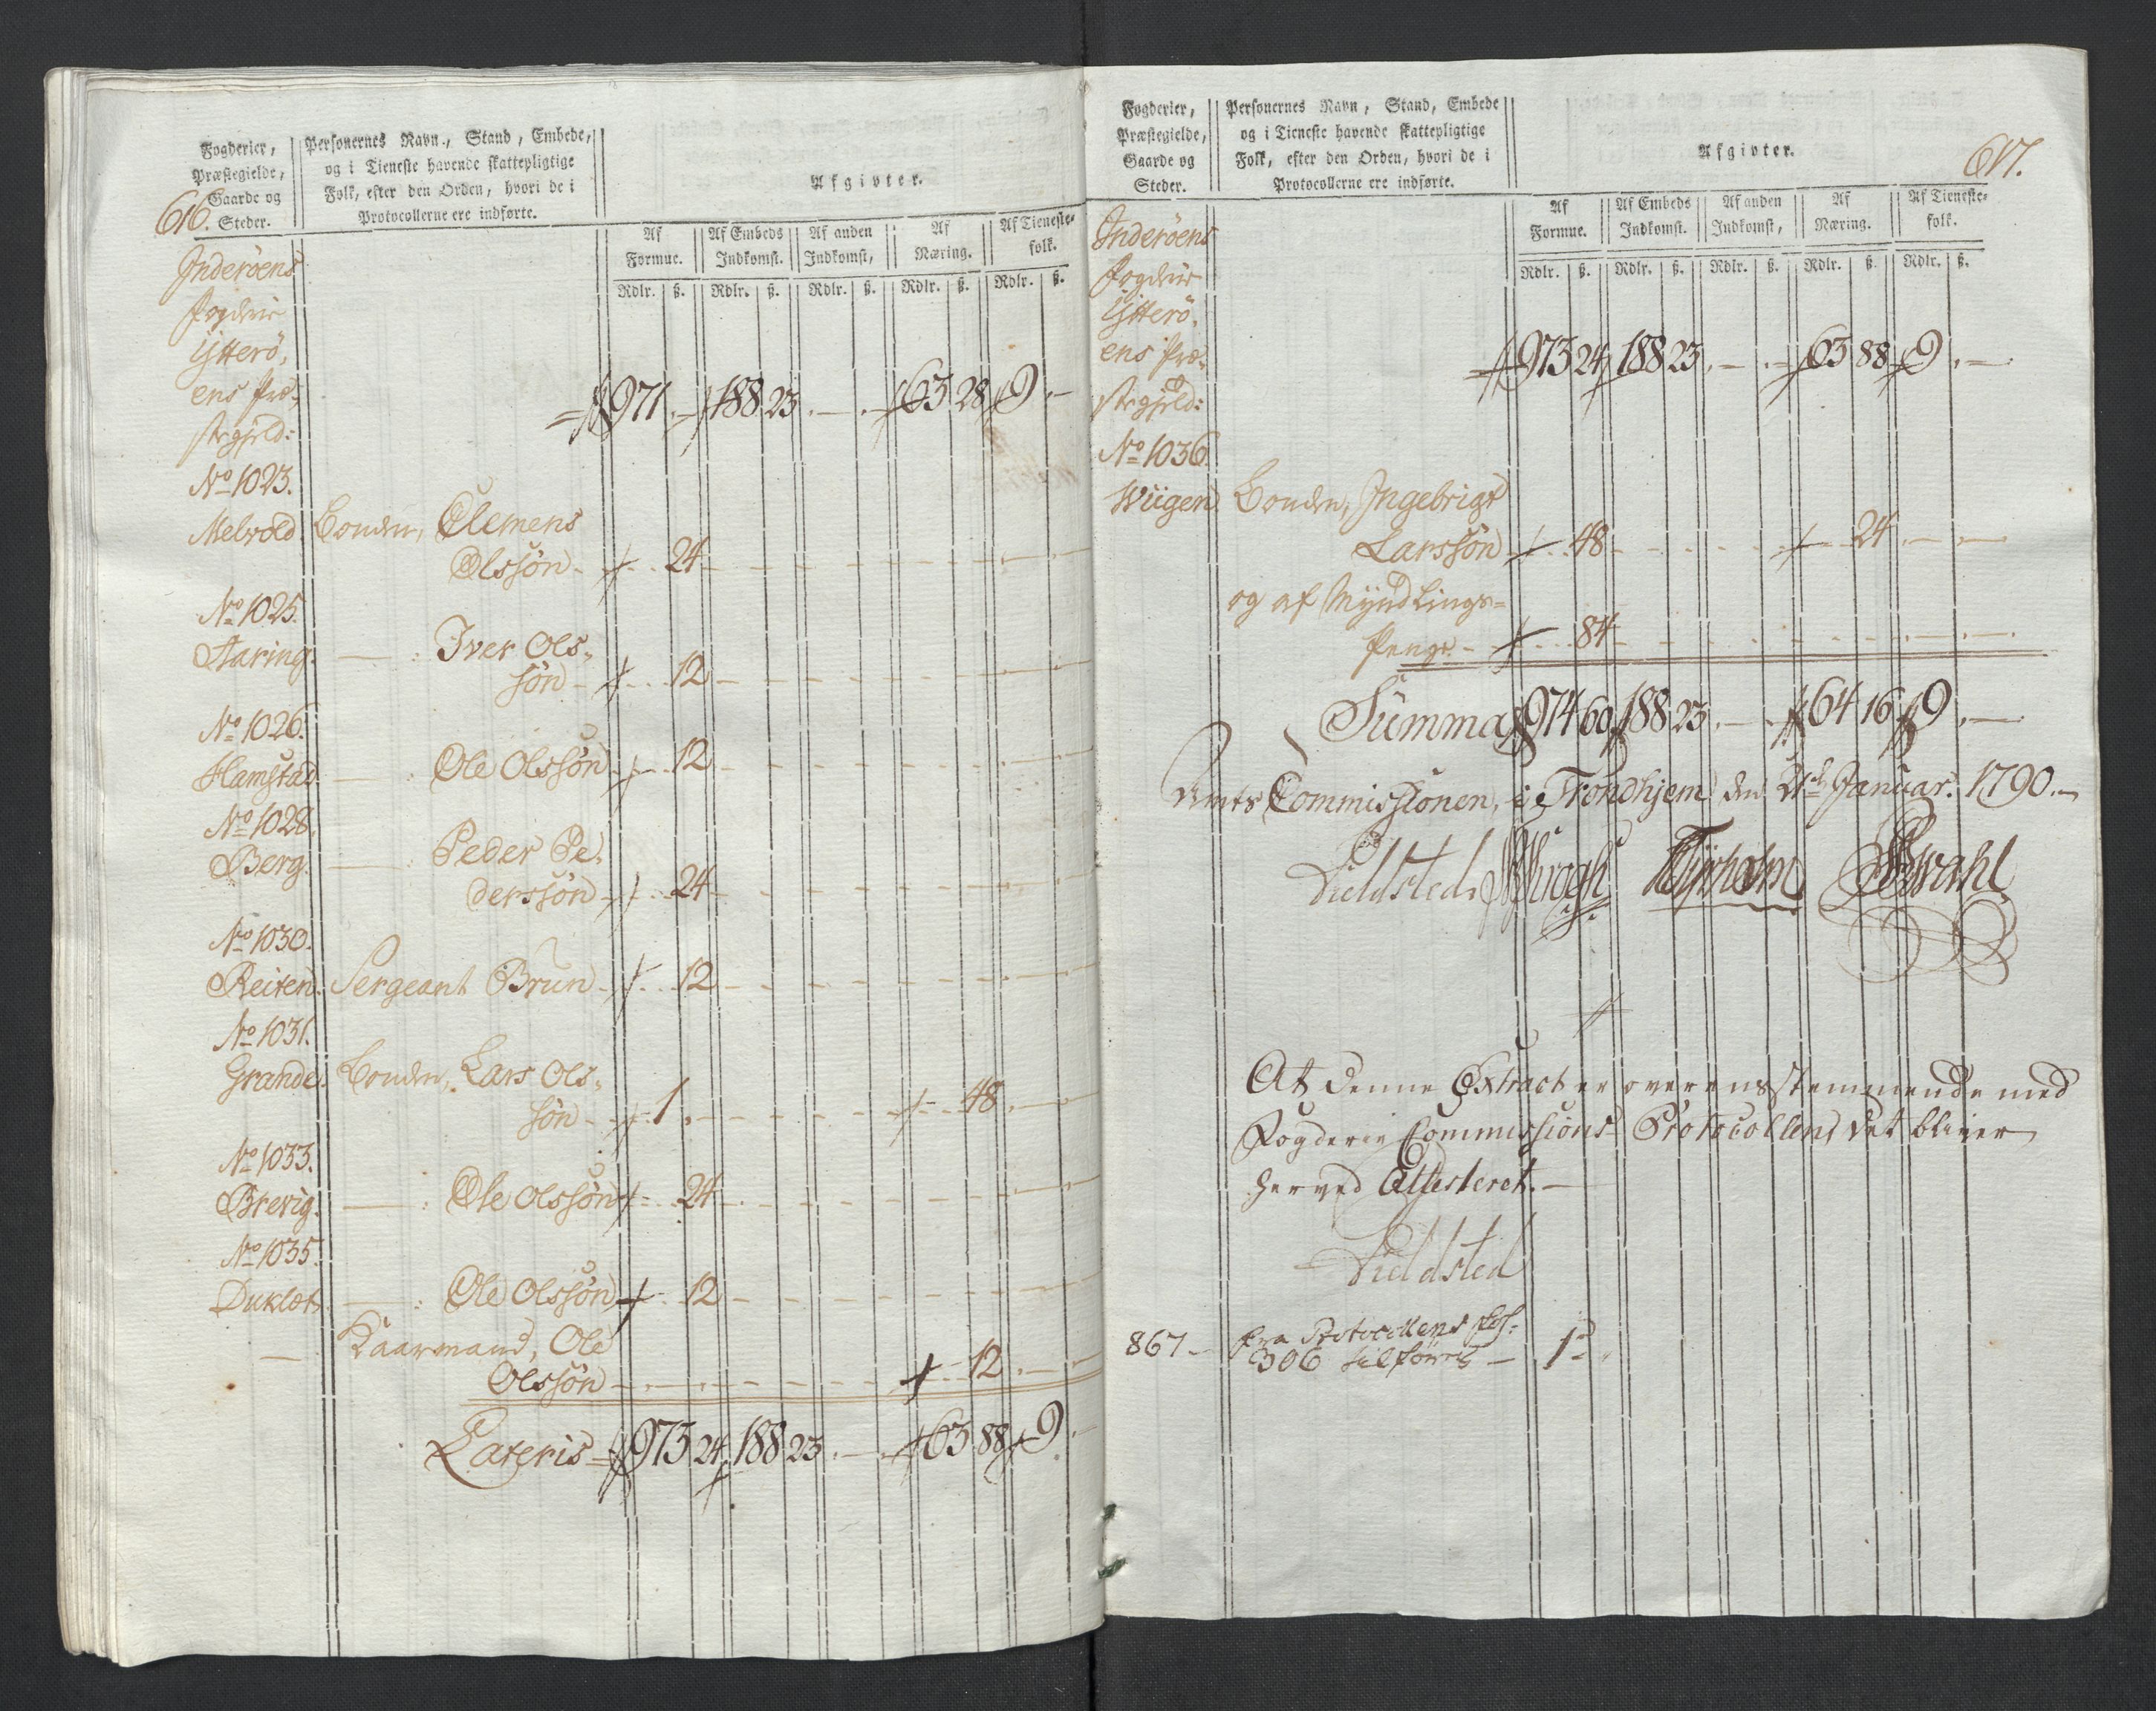 616.
Fogderier,
Præstegielde,
Gaarde og
Steder.
Personernes Navn, Stand, Embede,
og i Tieneste havende skattepligtige
Folk, efter den Orden, hvori de i
Protocollerne ere indførte.
Afgivter.
Af Formue. Af Embeds Indkomst. Af anden Indkomst, Af Næring. Af Tieneste-folk.
Rdlr. ß. Rdlr. ß. Rdlr. ß. Rdlr. ß. Rdlr. ß.
Inderöens
Fogderie
Ytterö,
ens Præ,
stegjeld:
971 . — 188 23 . — . — 63 28 9 . —
No 1023.
Melvold Bonden, Clemens
Olssön - 24
No 1025.
Aaring. — : Iver Ols,
sön - 12
No 1026.
Hamstad. — : Ole Olssön 12
No 1028.
Berg. — : Peder Pe,
derssön 24
No 1030.
Reiten. Sergeant Brun 12
No 1031.
Grande. Bonden, Lars Ols,
sön - 1 . — 48
No 1033.
Brevig. — : Ole Olssön 24
No 1035.
— : Ole Olssön 12
— Kaarmand, Ole
Olssön 12
Lateris = 973 24 188 23 . — . 63 88 9 . —
617.
Fogderier,
Præstegielde,
Gaarde og
Steder.
Personernes Navn, Stand, Embede
og i Tieneste havende skattepligtige
Folk, efter den Orden, hvori de i
Protocollerne ere indførte.
Afgivter.
Af Formue. Af Embeds Indkomst. Af anden Indkomst, Af Næring. Af Tieneste-folk.
Rdlr. ß. Rdlr. ß. Rdlr. ß. Rdlr. ß. Rdlr. ß.
Inderöens
Fogderie
Ytterö,
ens Præ,
stegjeld:
973 24 188 23 . — . — 63 88 9 . —
No 1036.
Wiigen Bonden, Ingebrigt
Larssön 48 24
og af Myndlings-
Penge - 84
Summa 974 60 188 23 . — . 64 16 9 . —
Amts Commissionen, i Trondhjem den 21de Januar. 1790. —
At denne Extract er overensstemmende med
Fogderie Commissions Protocollen, det bliver
herved Attesteret. —
867 — fra Protocollens
306 tilföres — 1